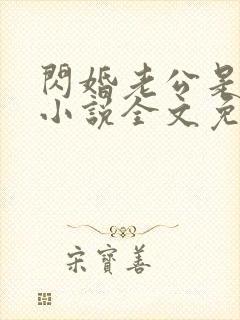 閃婚老公是
小說全文免
宋寶善